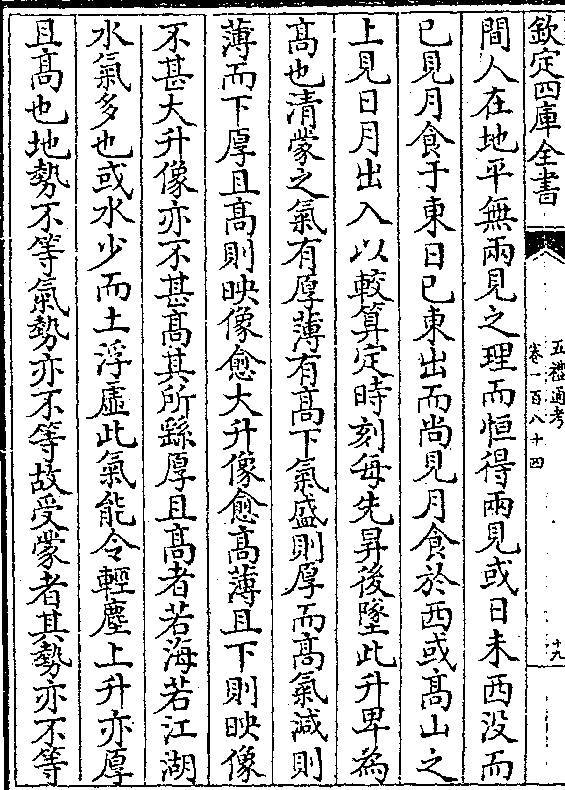 欽定四庫全書
五禮通考
卷一百八十四
十九
間人在地平無兩見之理而恒得兩見或日未西没而
已見月食于東日已東出而尚見月食於西或髙山之
上見日月出入以較算定時刻每先昇後墜此升卑為
髙也清蒙之氣有厚薄有髙下氣盛則厚而髙氣減則
薄而下厚且髙則映像愈大升像愈髙薄且下則映像
不甚大升像亦不甚髙其所繇厚且髙者若海若江湖
水氣多也或水少而土浮虚此氣能令輕塵上升亦厚
且髙也地勢不等氣勢亦不等故受蒙者其勢亦不等